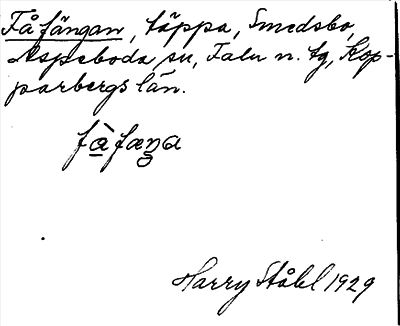 Fåfängan, täppa, Smedsbo,
Aspeboda sn, Falu n. tg, Kop-
parbergs län.
fà̲fæŋa
Harry Ståhl 1929